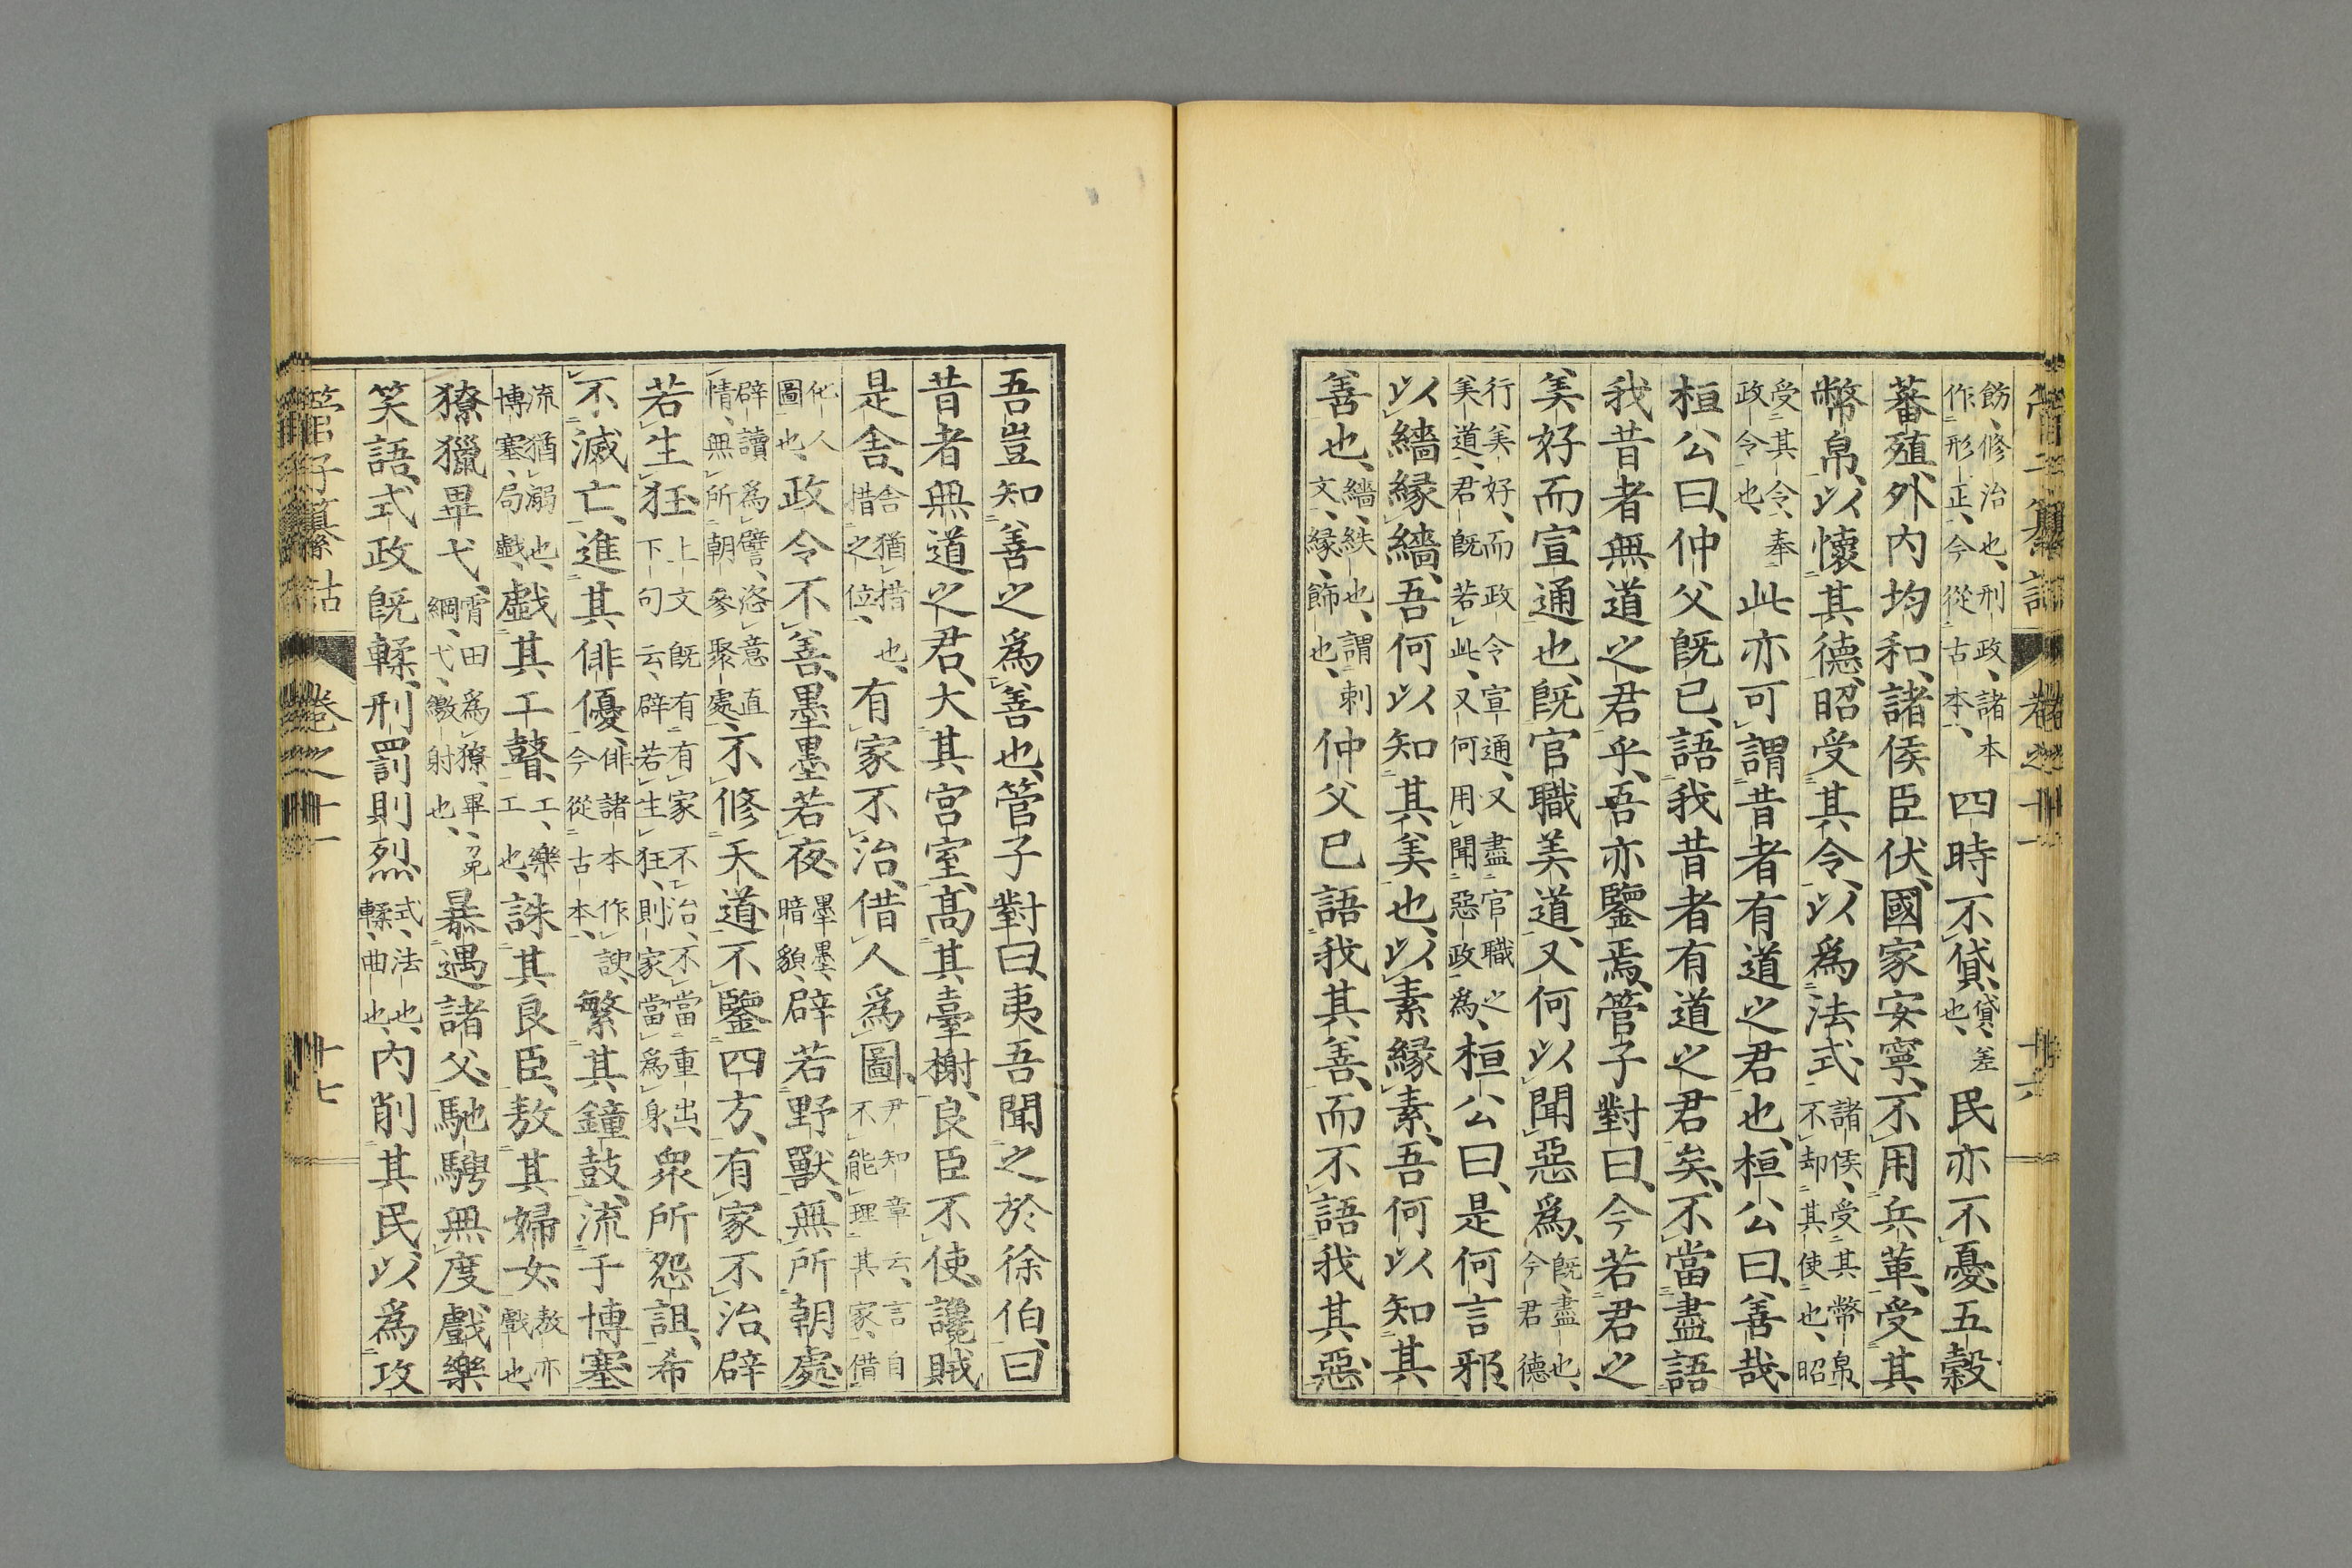 管子纂詁 卷之十一 十六
飭、修治也、刑政、諸本作形正、今從古本、四時不貸、貸、差也、民亦不憂、五穀
蕃殖、外内均和、諸侯臣伏、國家安寧、不用兵革、受其
幣帛、以懷其德、昭受其令、以爲法式、諸侯、受其幣帛、不却其使也、昭
受其令、奉政令也、此亦可謂昔者有道之君也、桓公曰、善哉、
桓公曰、仲父既已語我昔者有道之君矣、不當盡語
我昔者無道之君乎、吾亦鑒焉、管子對曰、今若君之
美好而宣通也、既官職美道、又何以聞惡爲、既、盡也、今君德
行美好、而政令宣通、又盡官職之美道、君既若此、又何用聞惡政爲、桓公曰、是何言邪、
以繬緣繬、吾何以知其美也、以素緣素、吾何以知其
善也、繬、紩也、謂刺文、緣、飾也、仲父已語我其善、而不語我其惡、
吾豈知善之爲善也、管子對曰、夷吾聞之於徐伯、曰
昔者無道之君、大其宮室、高其臺榭、良臣不使、讒賊
是舍、舍猶措也、措之位、有家不治、借人爲圖、尹知章云、言自不能理其家、借
化人圖也、政令不善、墨墨若夜、墨墨、暗貌、辟若野獸、無所朝處、
辟讀爲譬、洛意直情、無所朝參聚處、不修天道、不鑒四方、有家不治、辟
若生狂、上文既有有家不治、不當重出、下句云、辟若生狂、則家當爲身、衆所怨詛、希
不滅亡、進其俳優、俳諸本作諛、今從古本、繁其鐘鼓、流于博塞、
流猶溺也、博塞、局戲、戲其工瞽、工、樂工也、誅其良臣、敖其婦女、敖亦戲也、
獠獵畢弋、霄田爲獠、畢、兔網、弋、繳射也、暴遇諸父、馳騁無度、戲樂
笑語、式政既輮、刑罰則烈、式、法也、輮、曲也、内削其民、以爲攻
管子纂詁 卷之十一 十七